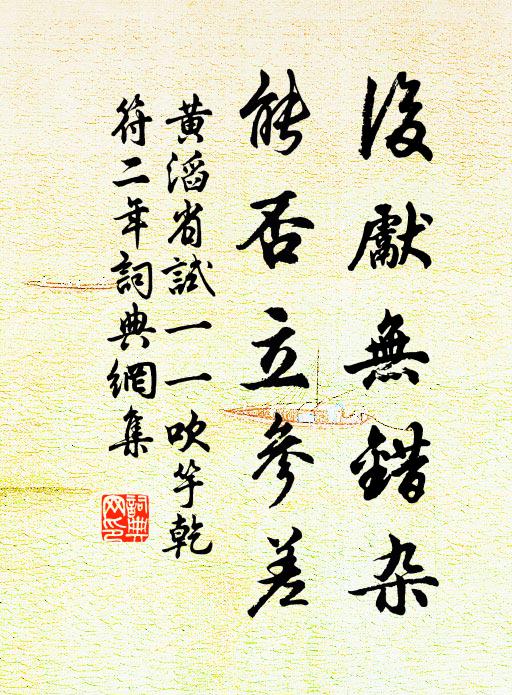 後獻無錯杂
能否立參差
黄滔省試一一吹竽乾
符二年詞典網集
詞典网印